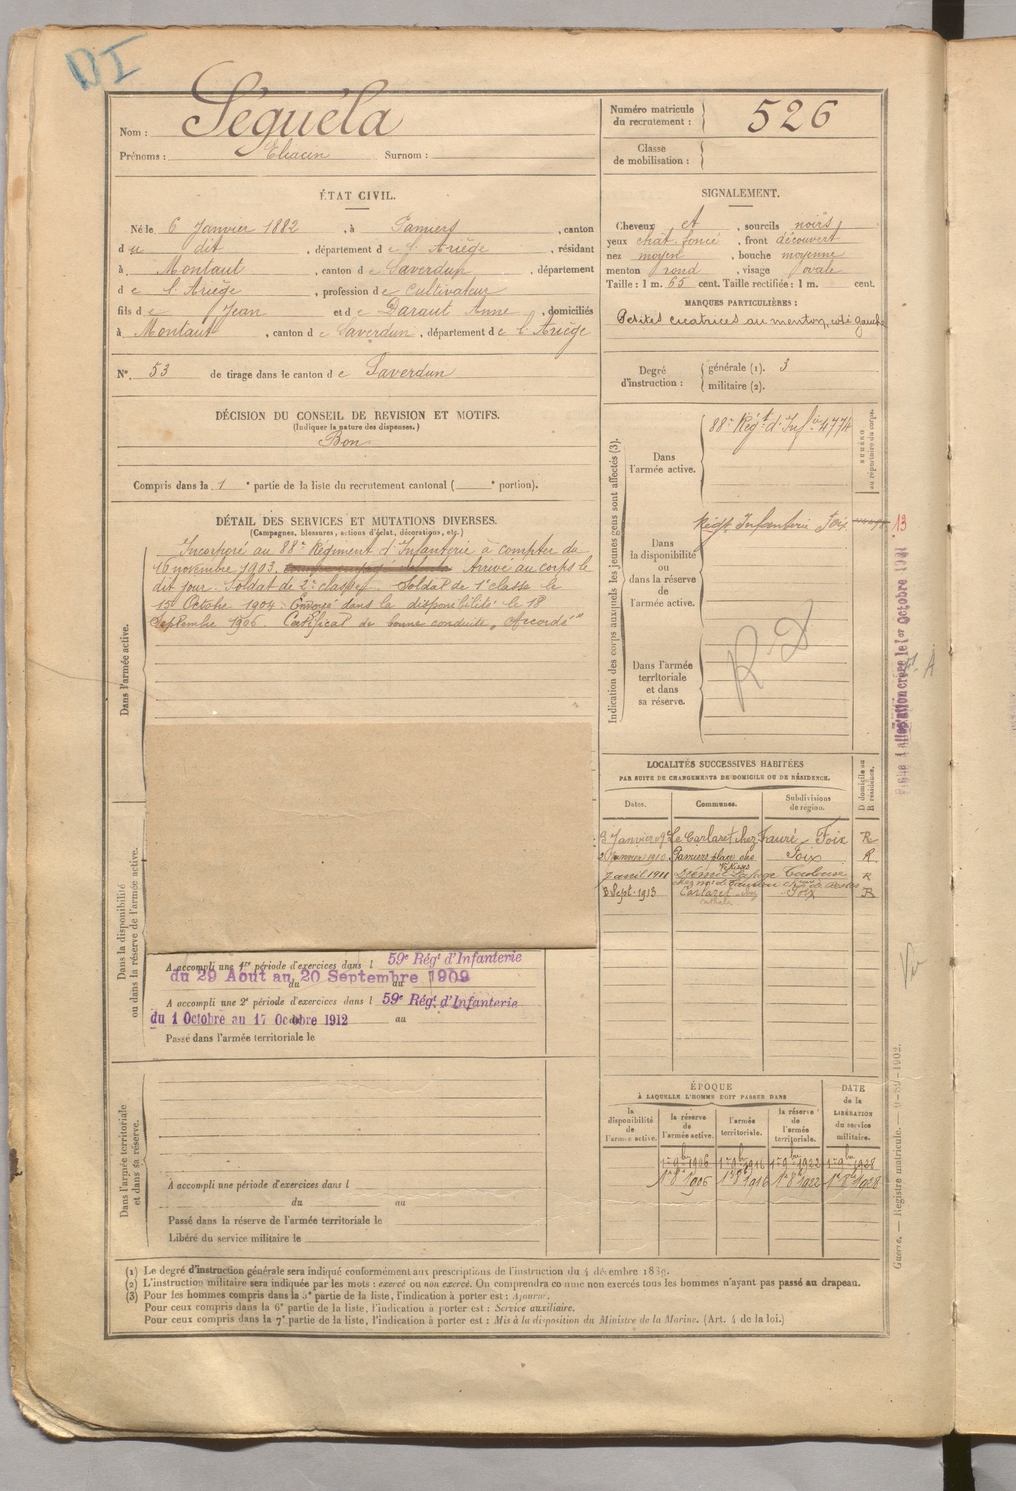 DI
Nom : Séguéla
Prénoms : Eliacin Surnom :
Numéro matricule du recrutement : 526
Classe de mobilisation :
ÉTAT CIVIL.
Né le 6 Janvier 1882, à Pamiers, canton
du dit, département de l'Ariège, résidant
à Montaut, canton de Saverdun, département
de l'Ariège, profession de Cultivateur
fils de Jean et de Daraut Anne, domiciliés
à Montaut, canton de Saverdun, département de l'Ariège
N° 53 de tirage dans le canton de Saverdun
SIGNALEMENT.
Cheveux et, sourcils noirs
yeux chât. foncé, front découvert
nez moyen, bouche moyenne
menton rond, visage ovale
Taille : 1 m. 65 cent. Taille rectifiée : 1 m. cent.
MARQUES PARTICULIÈRES :
Petites cicatrices au menton, côté gauche
Degré d'instruction : générale (1). 3
militaire (2).
DÉCISION DU CONSEIL DE REVISION ET MOTIFS.
(Indiquer la nature des dispenses.)
Bon
Compris dans la 1e partie de la liste du recrutement cantonal ( e portion).
DÉTAIL DES SERVICES ET MUTATIONS DIVERSES.
(Campagnes, blessures, actions d'éclat, décorations, etc.)
Dans l'armée active.
Incorporé au 88e Régiment d'Infanterie à compter du
16 novembre 1903. Arrivé au corps le
dit jour. Soldat de 2e classe. Soldat de 1e classe le
15 Octobre 1904. Envoyé dans la disponibilité le 18
Septembre 1906. Certificat de bonne conduite "Accordé"
Dans la disponibilité ou dans la réserve de l'armée active.
A accompli une 1re période d'exercices dans l 59e Régt d'Infanterie
du 29 Août au 20 Septembre 1909
A accompli une 2e période d'exercices dans l 59e Régt d'Infanterie
du 1 Octobre au 17 Octobre 1912 au
Passé dans l'armée territoriale le
Dans l'armée territoriale et dans sa réserve.
A accompli une période d'exercices dans l
du au
Passé dans la réserve de l'armée territoriale le
Libéré du service militaire le
Indication des corps auxquels les jeunes gens sont affectés (3).
NUMÉRO au répertoire du corps.
Dans l'armée active.
88e Régt d'Infie 4774
Dans la disponibilité ou dans la réserve de l'armée active.
Régt Infanterie Foix
13
Dans l'armée territoriale et dans sa réserve.
R D
1er Octobre 1921
LOCALITÉS SUCCESSIVES HABITÉES
PAR SUITE DE CHANGEMENTS DE DOMICILE OU DE RÉSIDENCE.
Dates. Communes. Subdivisions de région. D domicile ou R résidence.
3 Janvier 09 Le Carlaret chez Fauré Foix R
Janvier 1910 Pamiers place des Foix R
7 avril 1911 R
8 Sept. 1913 Carlaret Foix R
ÉPOQUE
À LAQUELLE L'HOMME DOIT PASSER DANS
la disponibilité de l'armée active. la réserve de l'armée active. l'armée territoriale. la réserve de l'armée territoriale. DATE de la LIBÉRATION du service militaire.
1er 9bre 1906 1er 9bre 1916 1er 9bre 1922 1er 9bre 1928
1er 8bre 1906 1er 8bre 1916 1er 8bre 1922 1er 8bre 1928
Guerre. — Registre matricule. — 9-89-1902.
(1) Le degré d'instruction générale sera indiqué conformément aux prescriptions de l'instruction du 4 décembre 1889.
(2) L'instruction militaire sera indiquée par les mots : exercé ou non exercé. On comprendra comme non exercés tous les hommes n'ayant pas passé au drapeau.
(3) Pour les hommes compris dans la 5e partie de la liste, l'indication à porter est : Ajourné.
Pour ceux compris dans la 6e partie de la liste, l'indication à porter est : Service auxiliaire.
Pour ceux compris dans la 7e partie de la liste, l'indication à porter est : Mis à la disposition du Ministre de la Marine. (Art. 4 de la loi.)